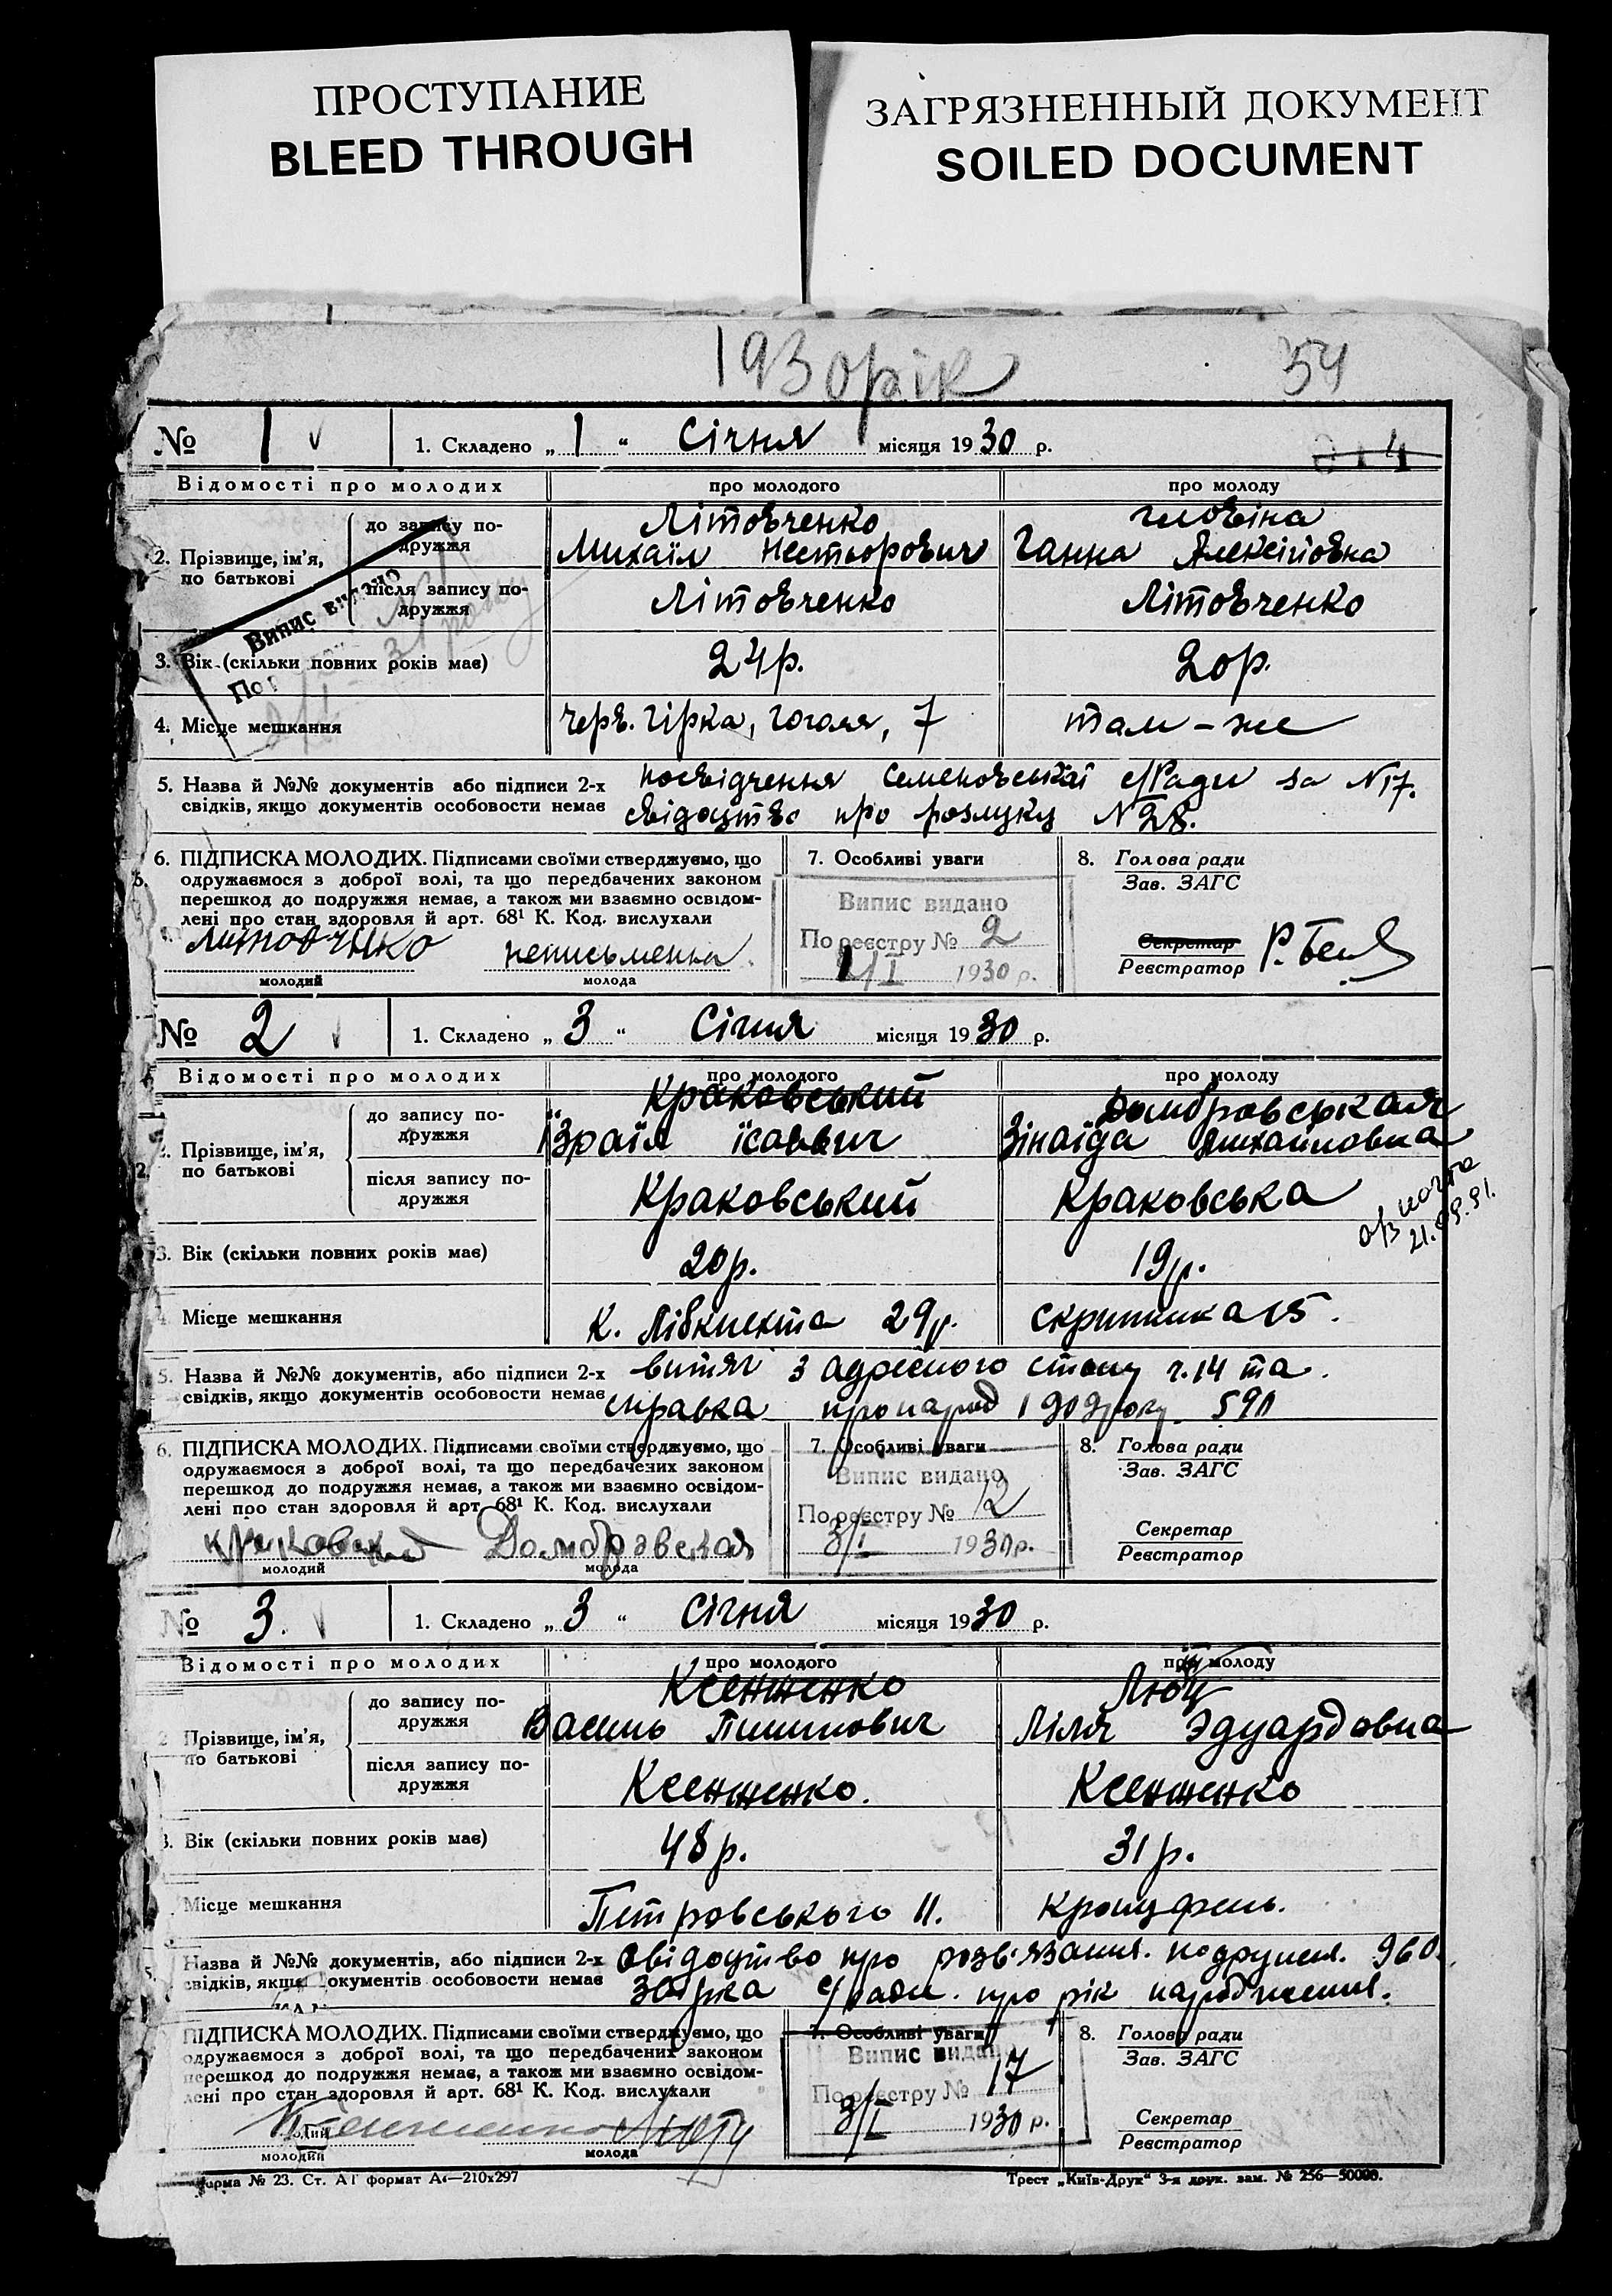 ПРОСТУПАНИЕ
BLEED THROUGH
ЗАГРЯЗНЕННЫЙ ДОКУМЕНТ
SOILED DOCUMENT
1930 рік
54
№ 1 1. Складено „1“ Січня місяця 1930 р.
Відомості про молодих про молодого про молоду
2. Прізвище, ім'я, по батькові
до запису подружжя
Літовченко
Михаіл Нестьорович
Ганна Алексіївна
після запису подружжя
Літовченко
Літовченко
Випис видано
3. Вік (скільки повних років має) 24 р. 20 р.
4. Місце мешкання Черв. Гірка, Гоголя, 7 там-же
5. Назва й №№ документів або підписи 2-х посвідчення Семеновської с/Ради за N 17.
свідків, якщо документів особовости немає свідоцтво про розлуку N 28.
6. ПІДПИСКА МОЛОДИХ. Підписами своїми стверджуємо, що
одружаємося з доброї волі, та що передбачених законом
перешкод до подружжя немає, а також ми взаємно освідом-
лені про стан здоровля й арт. 68¹ К. Код. вислухали
Литовченко неписьменна
молодий молода
7. Особливі уваги
Випис видано
По реєстру № 2
1930 р.
8. Голова ради
Зав. ЗАГС
Секретар
Реєстратор
№ 2 1. Складено „3“ Січня місяця 1930 р.
Відомості про молодих про молодого про молоду
Прізвище, ім'я, по батькові
до запису подружжя
Краковський
Ізраїл
Домбровськая
Зінаїда Михайловна
після запису подружжя
Краковський
Краковська
21.08.91.
3. Вік (скільки повних років має) 20 р. 19 р.
Місце мешкання К. Лібкнехта 29 Скрипника 15.
5. Назва й №№ документів, або підписи 2-х витяг з адресного столу ч. 14 та
свідків, якщо документів особовости немає справка
6. ПІДПИСКА МОЛОДИХ. Підписами своїми стверджуємо, що
одружаємося з доброї волі, та що передбачених законом
перешкод до подружжя немає, а також ми взаємно освідом-
лені про стан здоровля й арт. 68¹ К. Код. вислухали
Домбровская
молодий молода
7. Особливі уваги
Випис видано
По реєстру № 12
3/I 1930 р.
8. Голова ради
Зав. ЗАГС
Секретар
Реєстратор
№ 3. 1. Складено „3“ Січня місяця 1930 р.
Відомості про молодих про молодого про молоду
Прізвище, ім'я, по батькові
до запису подружжя
Ксенженко
Василь Пилипович
Ліля Эдуардовна
після запису подружжя
Ксенженко.
Ксенженко
Вік (скільки повних років має) 48 р. 31 р.
Місце мешкання Петровського 11.
Назва й №№ документів, або підписи 2-х свідоцтво про розв'язання подружжя 960.
свідків, якщо документів особовости немає с/ради про рік народження.
ПІДПИСКА МОЛОДИХ. Підписами своїми стверджуємо, що
одружаємося з доброї волі, та що передбачених законом
перешкод до подружжя немає, а також ми взаємно освідом-
лені про стан здоровля й арт. 68¹ К. Код. вислухали
молодий молода
7. Особливі уваги
Випис видано
По реєстру № 17
3/I 1930 р.
8. Голова ради
Зав. ЗАГС
Секретар
Реєстратор
форма № 23. Ст. АГ формат А4—210x297
Трест „Київ-Друк“ 3-я друк. зам. № 256—50000.